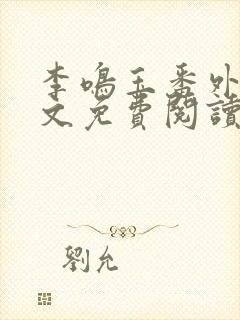 李鳴玉番外
文免費閱讀
劉允